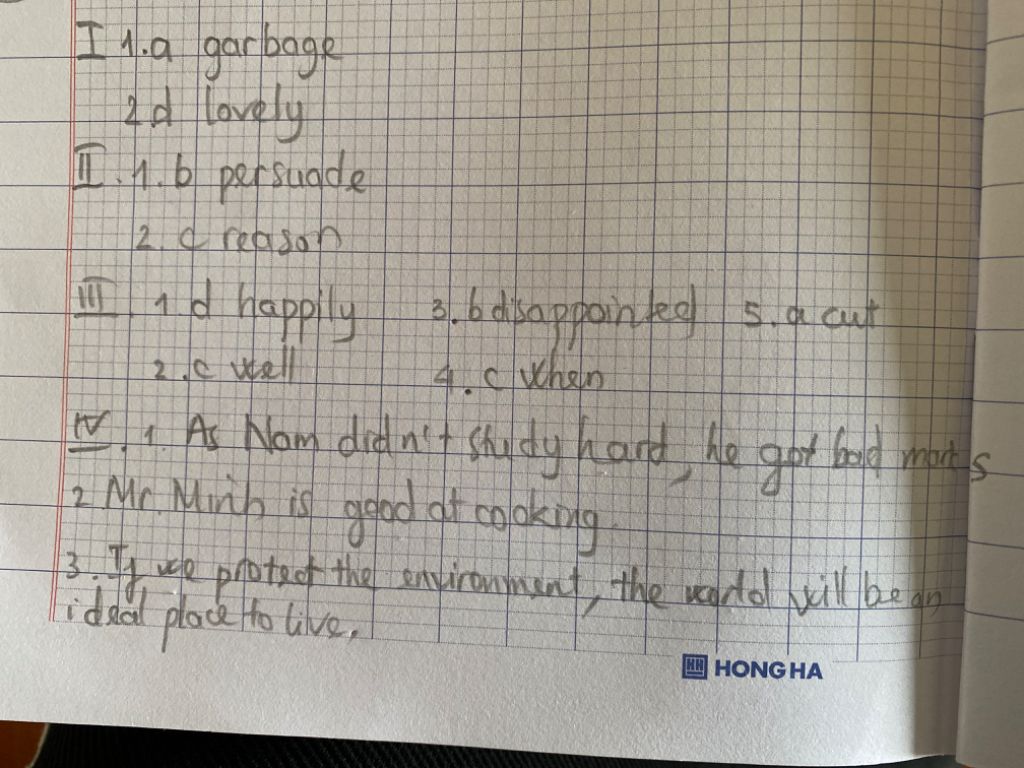 I 1.a garbage
2 d lovely
II. 1. b persuade
2. c reason
III. 1. d happily 3. b disappointed 5. a cut
2. c well 4. c when
IV. 1. As Nam didn't study hard, he got bad marks
2 Mr. Minh is good at cooking.
3. If we protect the environment, the world will be an
ideal place to live.
HH HONG HA